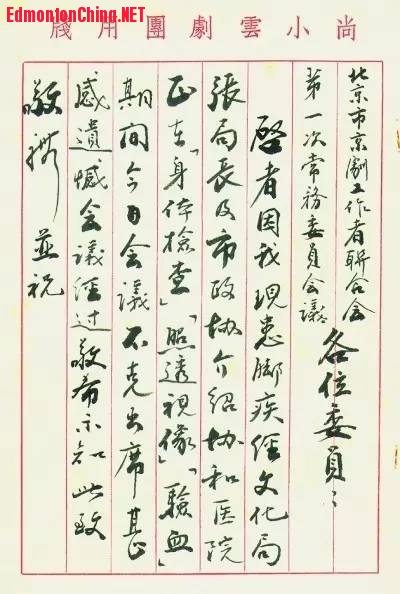 EdmontonChina.NET
尚小雲劇團用牋
北京市京劇工作者聯合会
第一次常務委員会議
各位委員：
啓者因我現患脚疾經文化局
張局長及市政協介紹協和医院
正在「身体檢查」「照透視像」「驗血」
期间今日会議不克出席甚
感遺憾会議經过敬希示知此致
敬礼 並祝